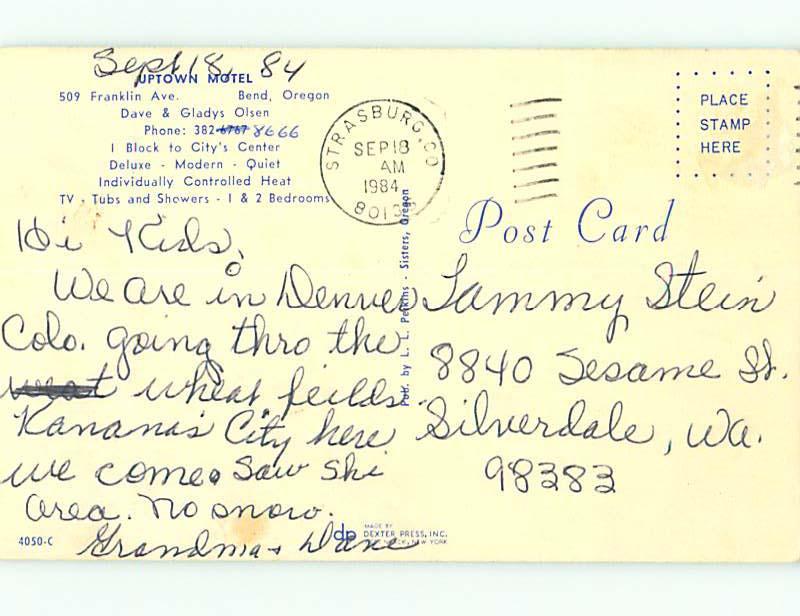 Sept 18, 84
UPTOWN MOTEL
509 Franklin Ave. Bend, Oregon
Dave & Gladys Olsen
Phone: 382-6767 8666
1 Block to City's Center
Deluxe - Modern - Quiet
Individually Controlled Heat
TV - Tubs and Showers - 1 & 2 Bedrooms
STRASBURG, CO
SEP 18
AM
1984
PLACE
STAMP
HERE
Post Card
Hi Kids,
We are in Denver
Colo. going thro the
wheat feilds.
Kananas City here
we come. Saw Ski
area. No snow.
Grandma + Dave
Pub. by L. L. Perkins - Sisters, Oregon
Tammy Stein
8840 Sesame St.
Silverdale, Wa.
98383
4050-C
dp
MADE BY
DEXTER PRESS, INC.
NEW YORK